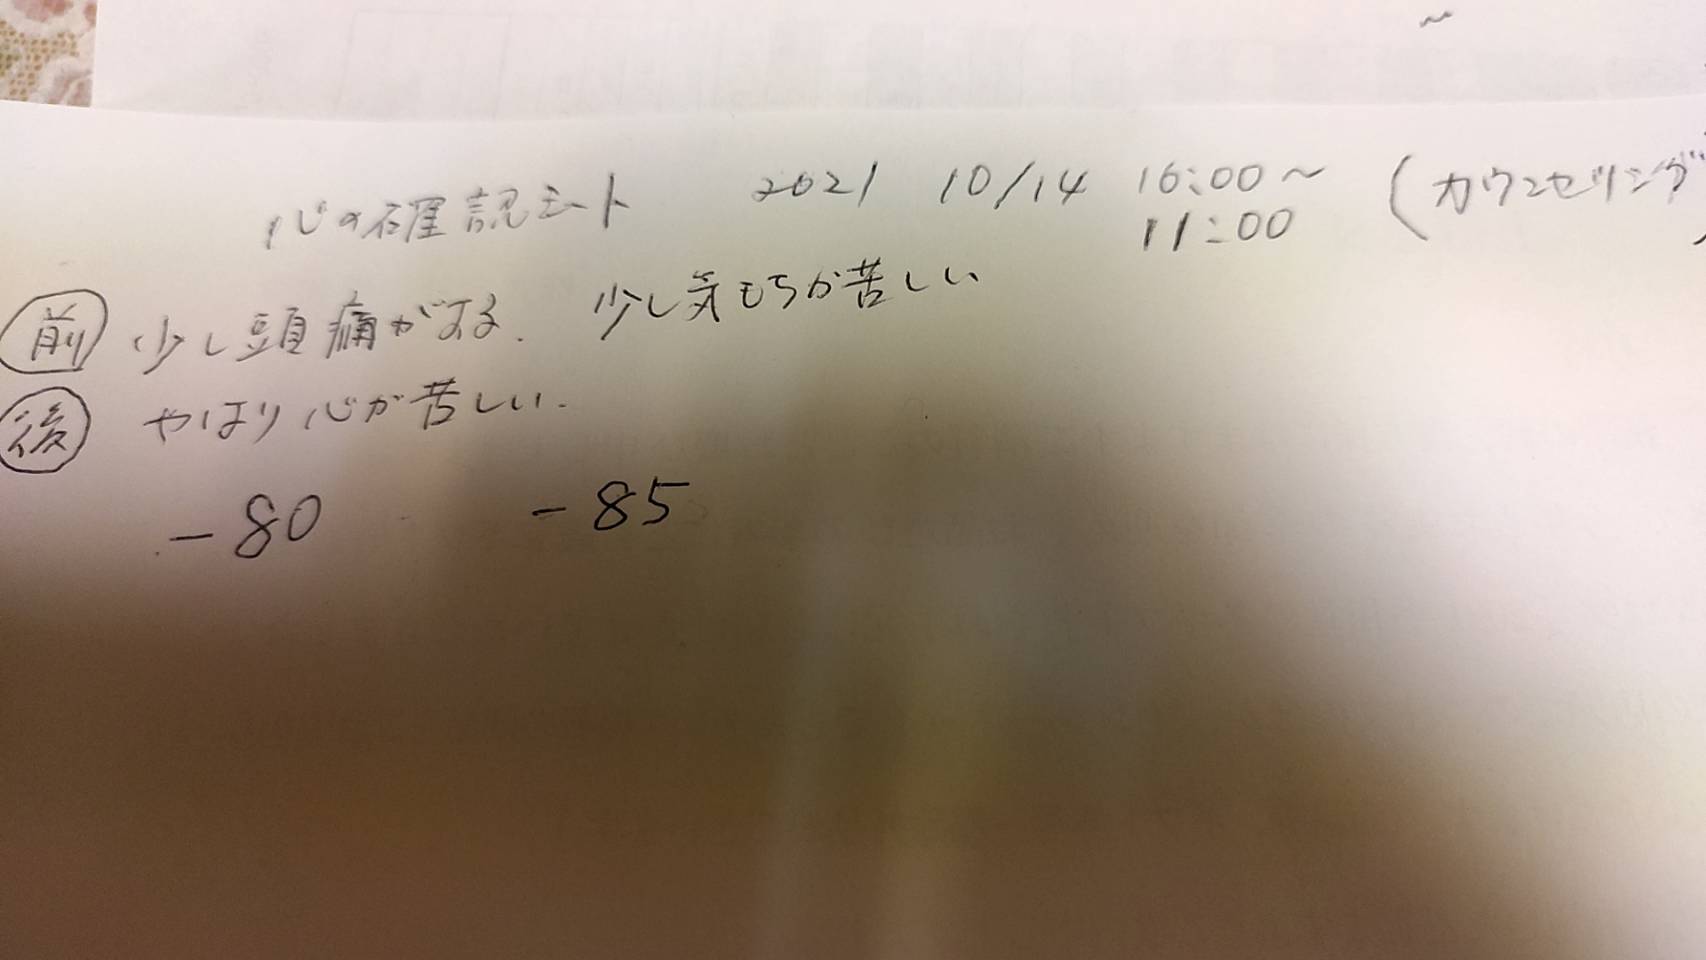 心の確認シート 2021 10/14 10:00～ (カウンセリング)
11:00
前 少し頭痛がする. 少し気もちが苦しい
後 やはり心が苦しい.
-80 -85